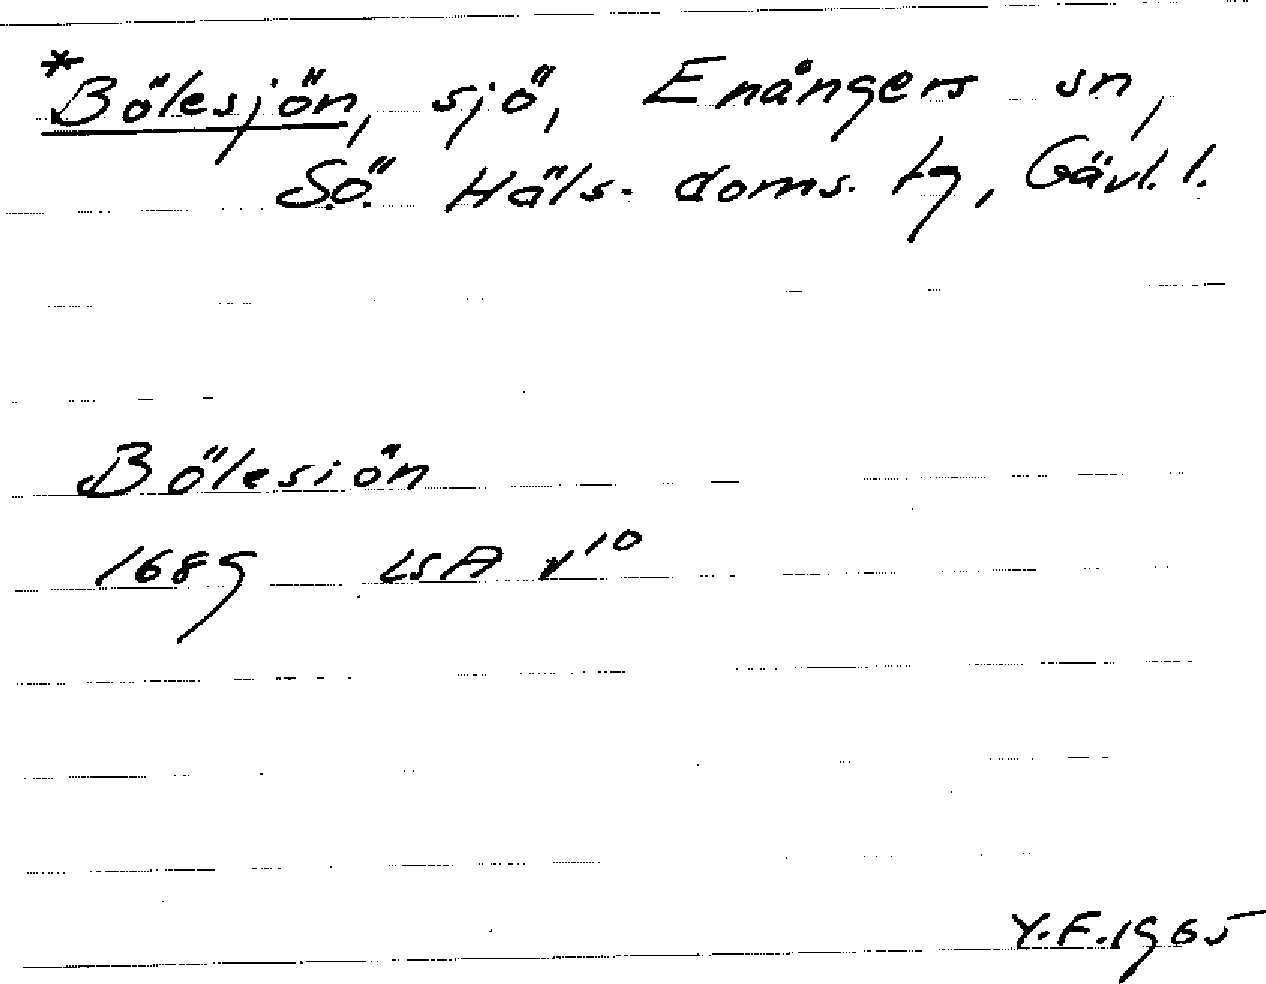 *Bölesjön, sjö, Enångers sn,
S.Ö. Häls. doms. tg, Gävl. l.
Bölesiön
1689 LSA v¹⁰
Y.F.1965